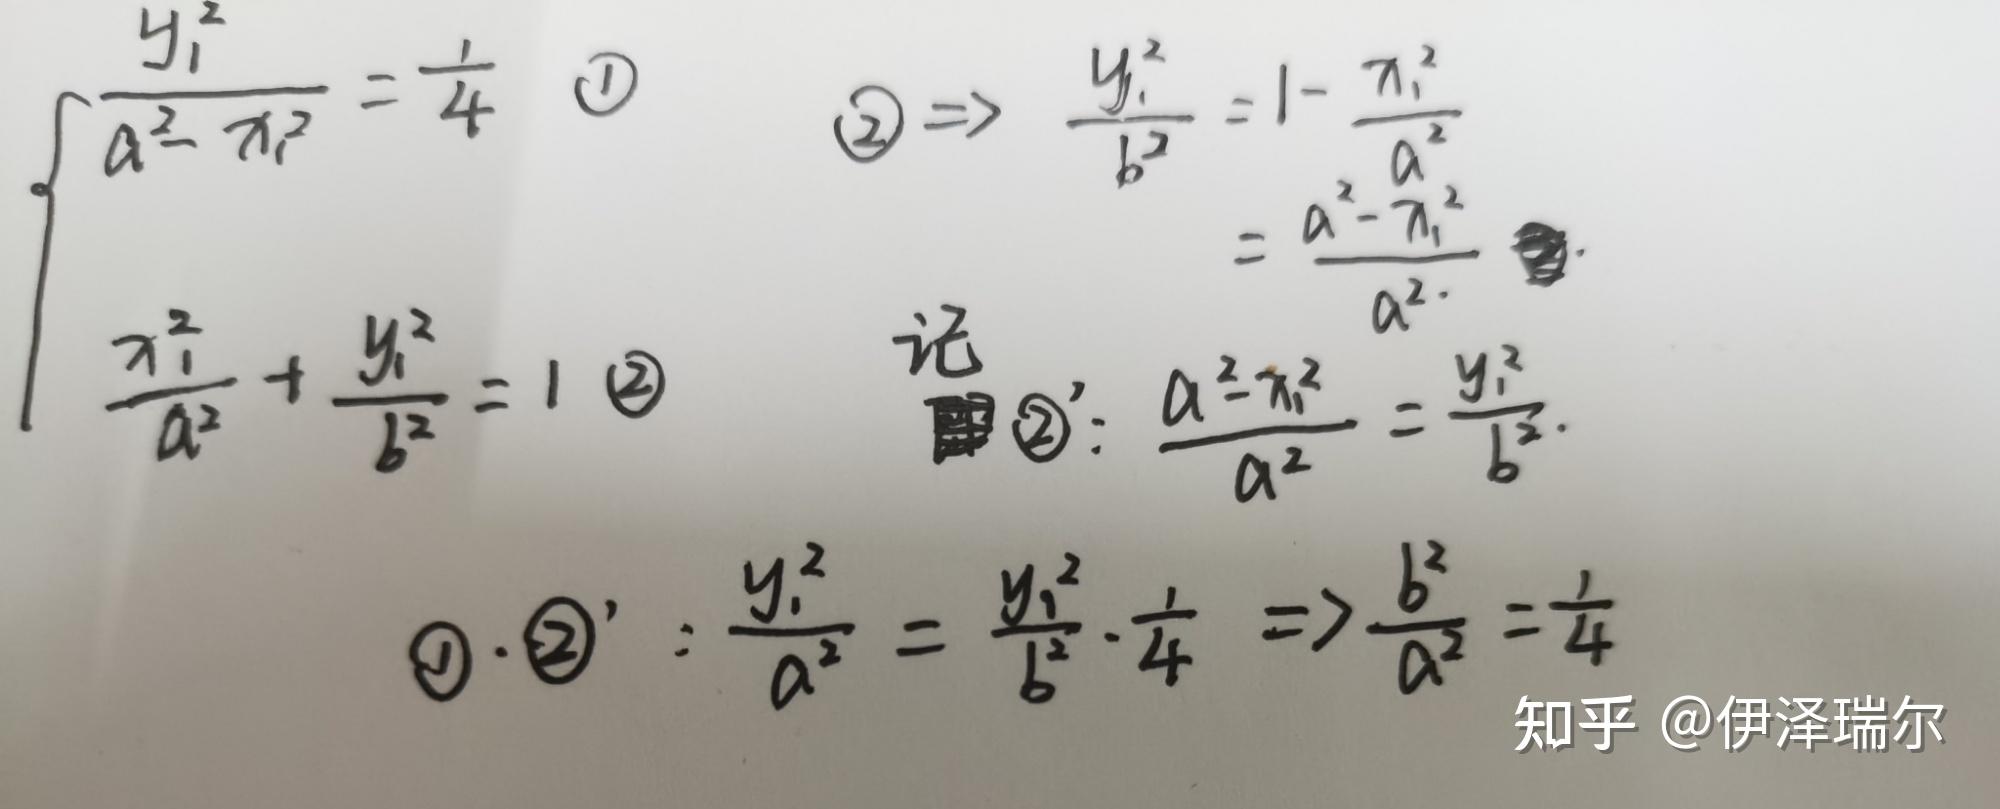 y₁²/(a²-x₁²) = 1/4 ①
x₁²/a² + y₁²/b² = 1 ②
② => y₁²/b² = 1 - x₁²/a²
= (a²-x₁²)/a².
记
②′: (a²-x₁²)/a² = y₁²/b².
①·②′: y₁²/a² = y₁²/b² · 1/4 => b²/a² = 1/4
知乎 @伊泽瑞尔